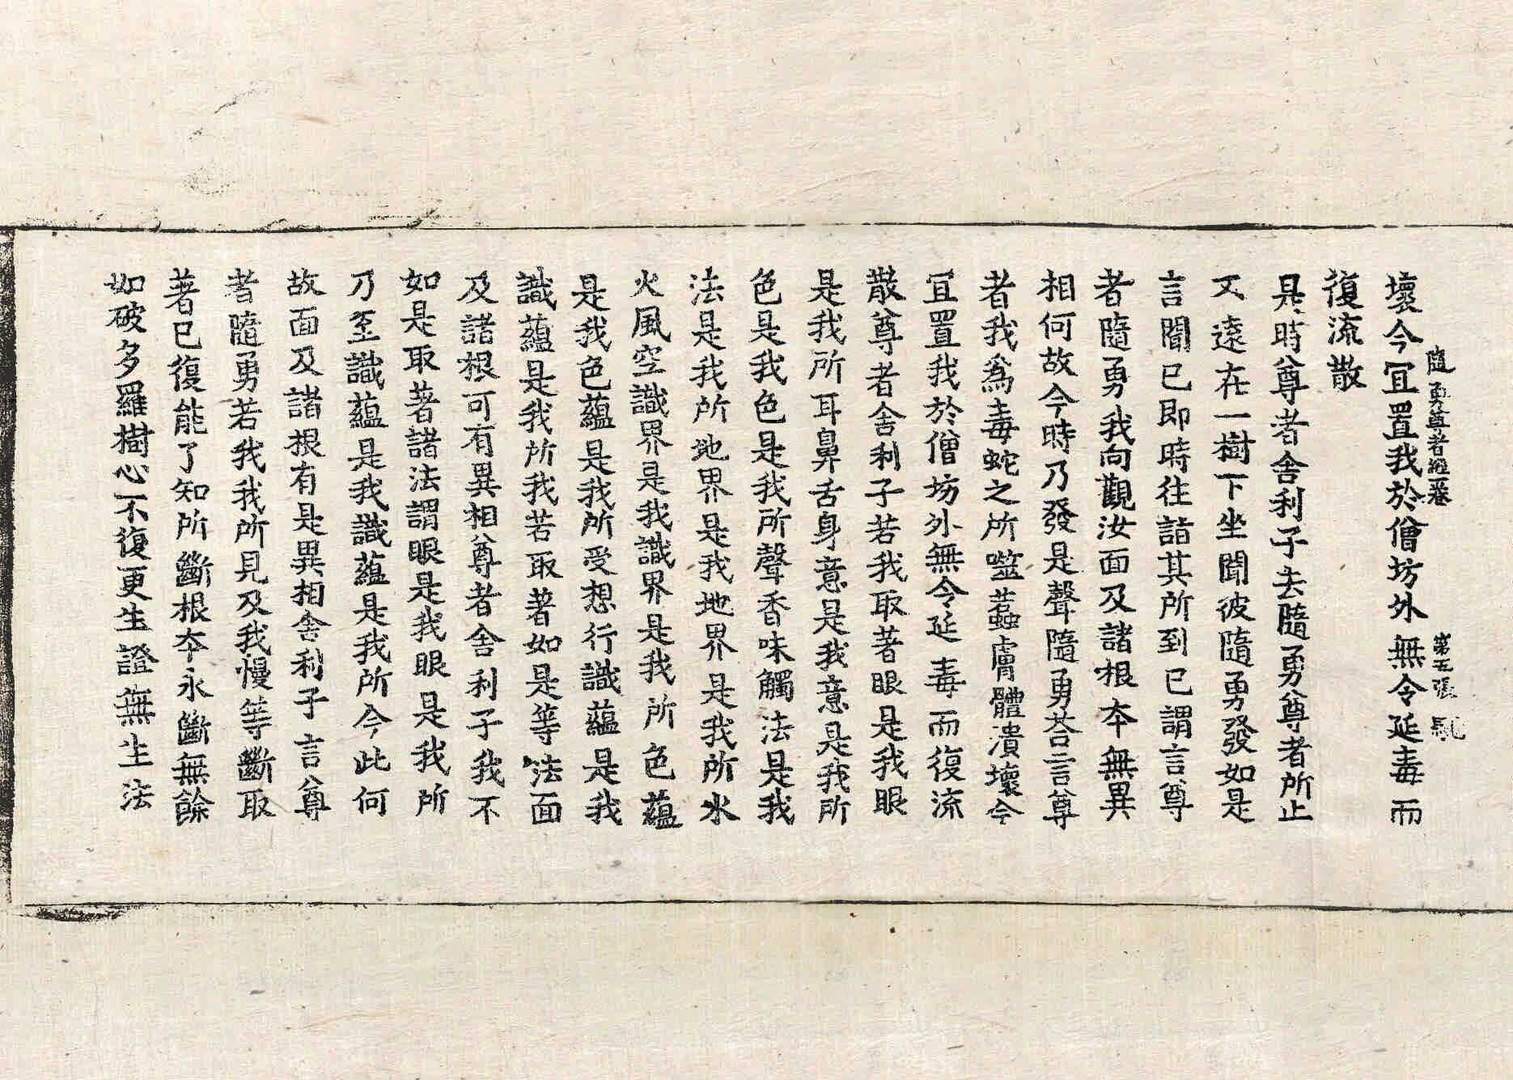 壞今宜置我於僧坊外無令延毒而
隨勇尊者經一卷 第五張
復流散
具時尊者舍利子去隨勇尊者所止
又遠在一樹下坐聞彼隨勇發如是
言聞已即時往詣其所到已謂言尊
者隨勇我向觀汝面及諸根本無異
相何故今時乃發是聲隨勇荅言尊
者我為毒蛇之所噬蠚膚體潰壞令
宜置我於僧坊外無令延毒而復流
散尊者舍利子若我取著眼是我眼
是我所耳鼻舌身意是我意是我所
色是我色是我所聲香味觸法是我
法是我所地界是我地界是我所水
火風空識界是我識界是我所色蘊
是我色蘊是我所受想行識蘊是我
識蘊是我所我若取著如是等法面
及諸根可有異相尊者舍利子我不
如是取著諸法謂眼是我眼是我所
乃至識蘊是我識蘊是我所今此何
故面及諸根有是異相舍利子言尊
者隨勇若我我所見及我慢等斷取
著已復能了知所斷根本永斷無餘
如破多羅樹心不復更生證無生法